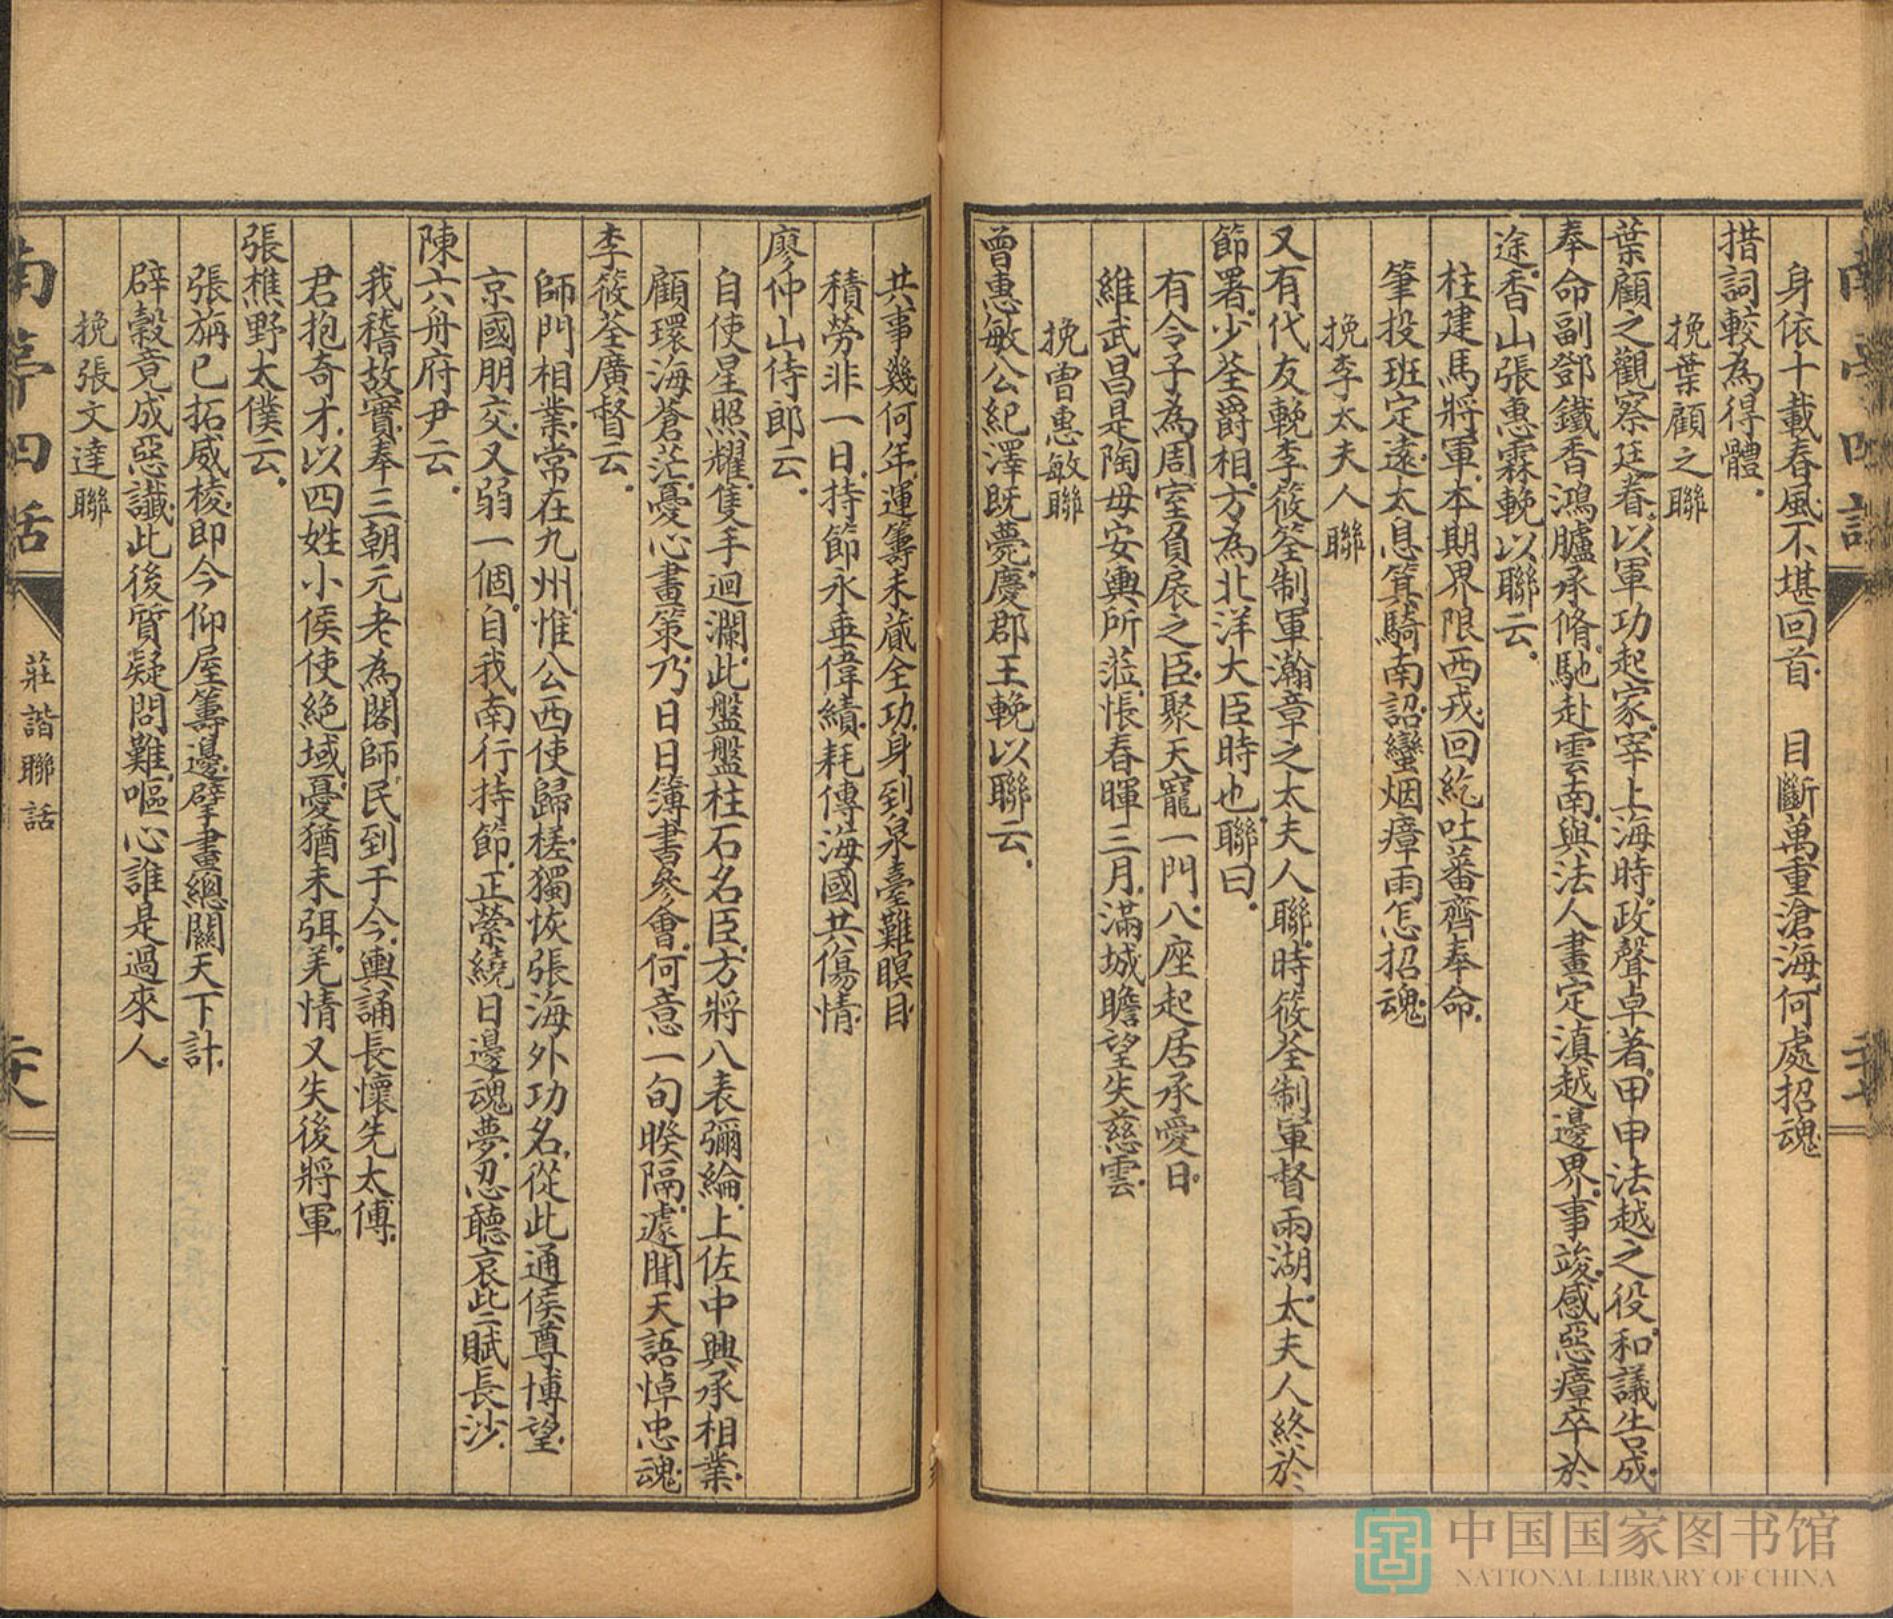 身依十載春風不堪回首　目斷萬重滄海何處招魂
措詞較為得體。
挽葉顧之聯
葉顧之觀察廷眷。以軍功起家。宰上海時。政聲卓著。甲申法越之役。和議告成。
奉命副鄧鐵香鴻臚承脩。馳赴雲南。與法人畫定滇越邊界。事竣。感惡瘴卒於
途。香山張惠霖輓以聯云。
柱建馬將軍。本期界限西戎。回紇吐蕃齊奉命。
筆投班定遠。太息箕騎南詔。蠻烟瘴雨怎招魂。
挽李太夫人聯
又有代友輓李筱荃制軍瀚章之太夫人聯。時筱荃制軍督兩湖。太夫人終於
節署。少荃爵相。方為北洋大臣時也。聯曰。
有令子為周室負扆之臣。聚天寵一門。八座起居承愛日。
維武昌是陶母安輿所蒞。悵春暉三月。滿城瞻望失慈雲。
挽曾惠敏聯
曾惠敏公紀澤既薨。慶郡王輓以聯云。
共事幾何年。運籌未蕆全功。身到泉臺難瞑目。
積勞非一日。持節永垂偉績。耗傳海國共傷情。
廖仲山侍郎云。
自使星照耀。隻手迴瀾。此盤盤柱石名臣。方將八表彌綸。上佐中興承相業。
顧環海蒼茫。憂心畫策。乃日日簿書參會。何意一旬暌隔。遽聞天語悼忠魂。
李筱荃廣督云。
師門相業。常在九州。惟公西使歸槎。獨恢張海外功名。從此通侯尊博望。
京國朋交。又弱一個。自我南行持節。正縈繞日邊魂夢。忍聽哀些賦長沙。
陳六舟府尹云。
我稽故實。奉三朝元老為閣師。民到于今。輿誦長懷先太傅。
君抱奇才。以四姓小侯使絕域。憂猶未弭。羌情又失後將軍。
張樵野太僕云。
張旃已拓威棱。即今仰屋籌邊。擘畫總關天下計。
辟穀竟成惡讖。此後質疑問難。嘔心誰是過來人。
挽張文達聯
南亭四話
莊諧聯話